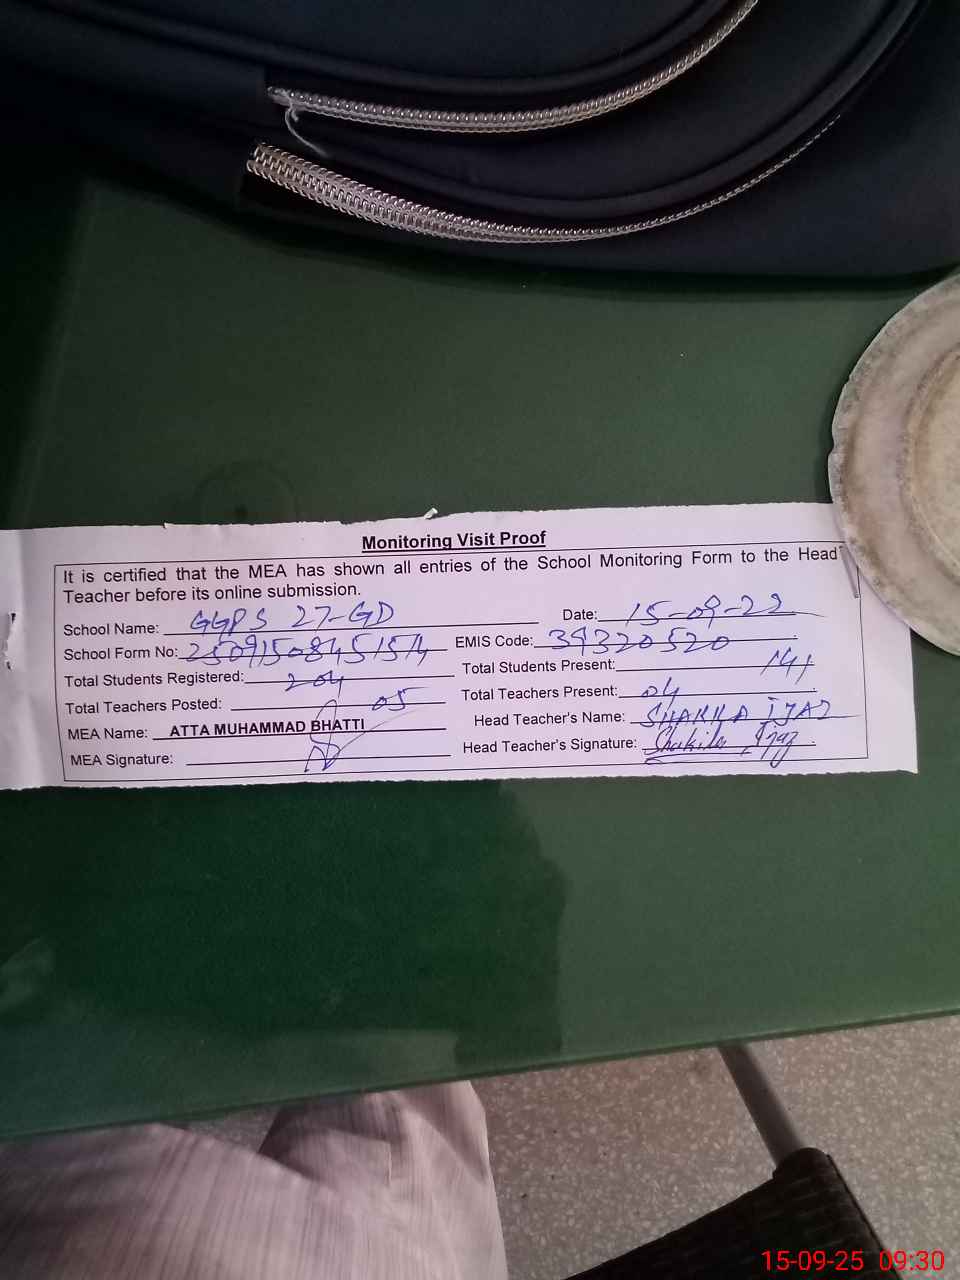 Monitoring Visit Proof
It is certified that the MEA has shown all entries of the School Monitoring Form to the Head
Teacher before its online submission.
School Name: GGPS 27-GD Date: 15-09-22
School Form No: 2509150845154 EMIS Code: 39320520
Total Students Registered: 204 Total Students Present: 141
Total Teachers Posted: 05 Total Teachers Present: 04
MEA Name: ATTA MUHAMMAD BHATTI Head Teacher's Name: SHAKILA IJAZ
MEA Signature: Head Teacher's Signature: Shakila Ijaz
15-09-25 09:30